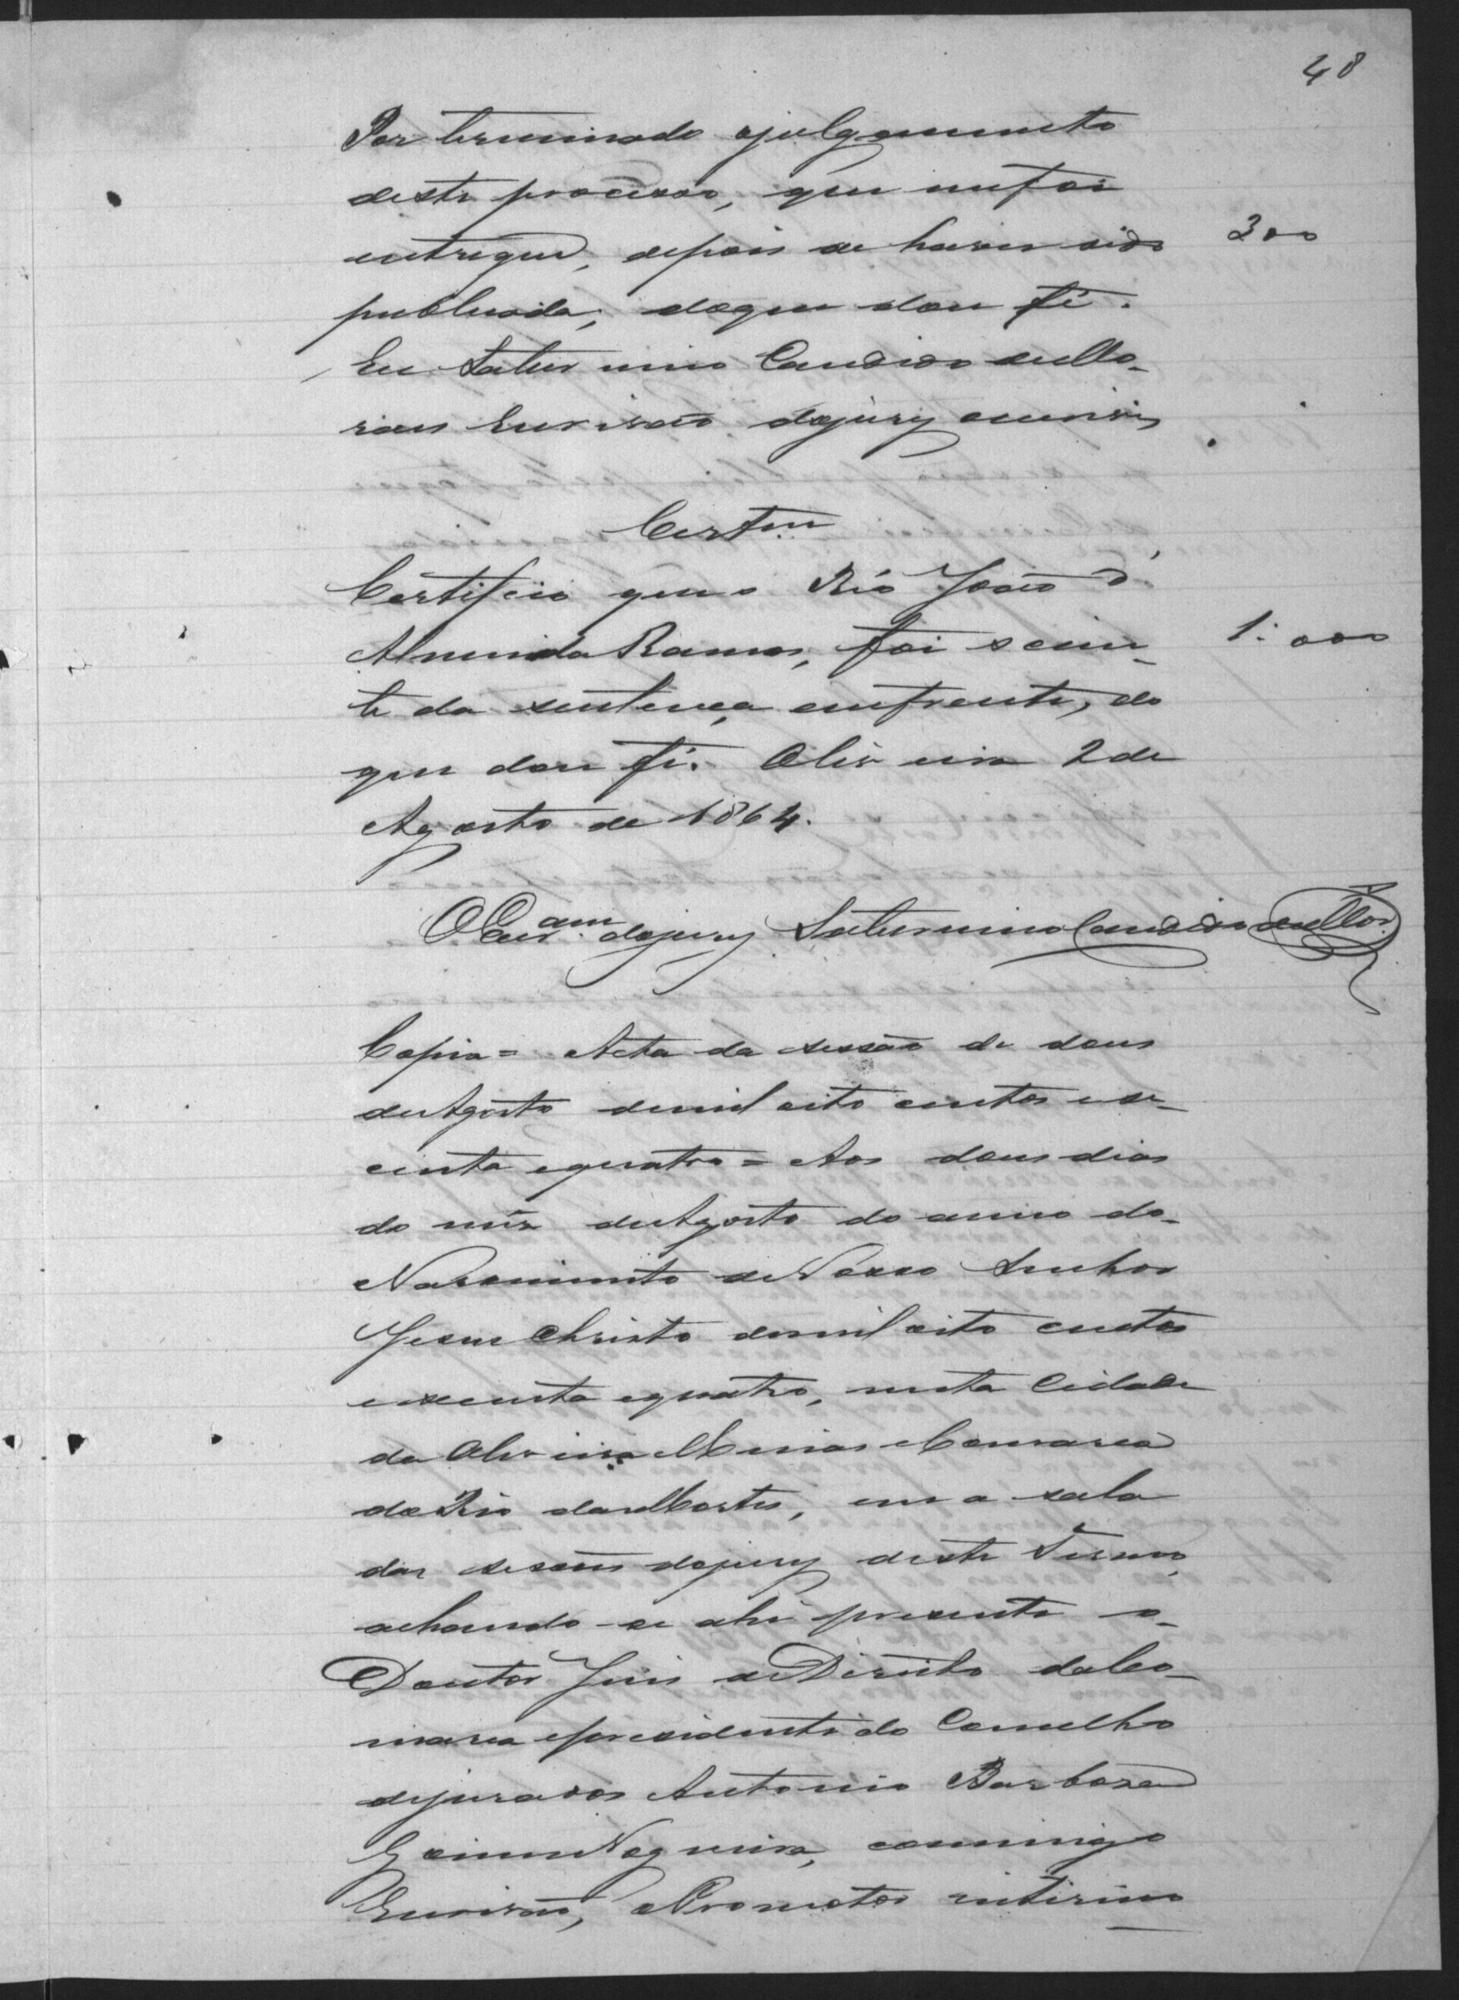 48
Por terminado ojulgamento
deste processo, que mefoi
entregue, depois de haver sido 300
publicada, doque dou fé.
Eu Saturnino Candido de Mo-
raes Escrivão dojury escrevi
Certam
Certifico que o Réo João d'
Almeida Ramos, foi scien- 1:000
te da sentença emfrente, do
que dou fé. Oliveira 2 de
Agosto de 1864.
O Escram dojury Saturnino Candido de Mor.
Copia = Acta da sessão de dous
deAgosto demil oito centos e se-
centa equatro = Aos dous dias
do mez deAgosto do anno do
Nascimento deNosso Senhor
Jesus Christo demil oito centos
esecenta equatro, nesta Cidade
da Oliveira Minas Comarca
doRio dasMortes, em a sala
das sessões dojury deste Termo,
achando-se ahi presente o
Doutor Juis deDireito daCo-
marca epresidente do Conselho
dejurados Antonio Barbosa
Gomes Nogueira, commigo
Escrivão, o Promotor interino